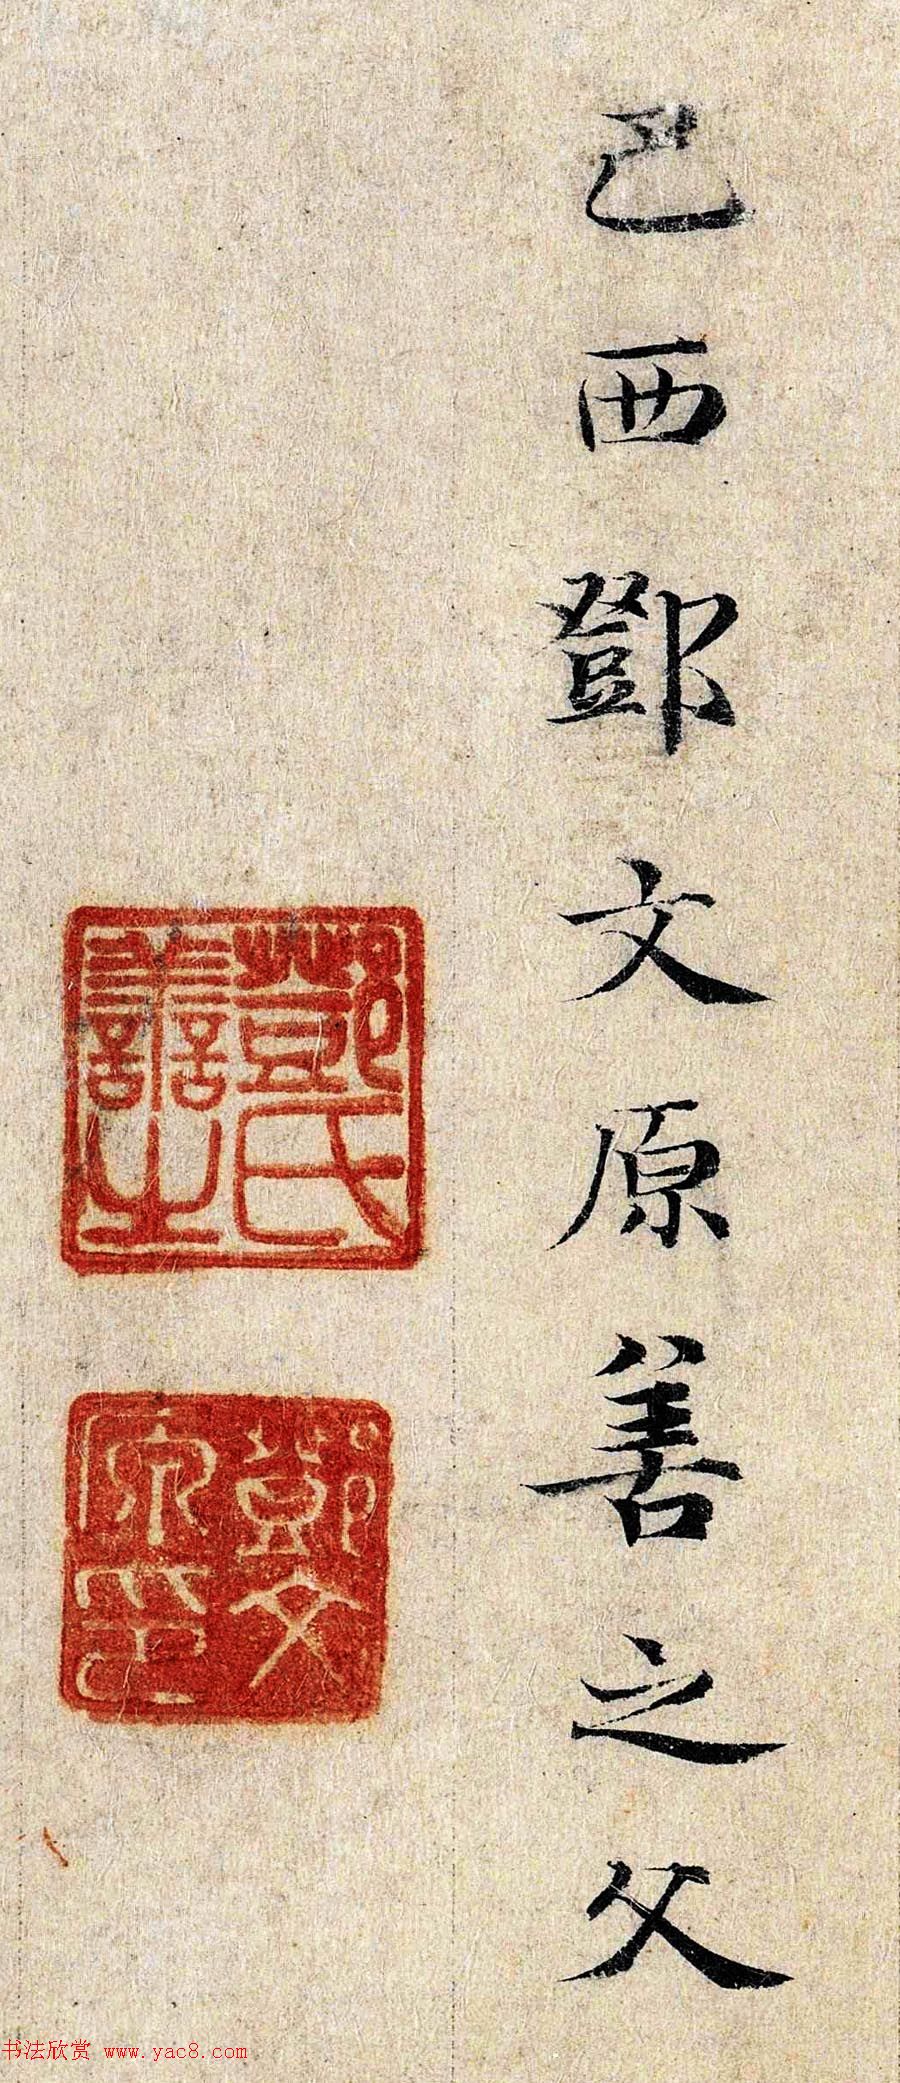 巴西鄧文原善之父
鄧氏善之
鄧文原印
书法欣赏 www.yac8.com